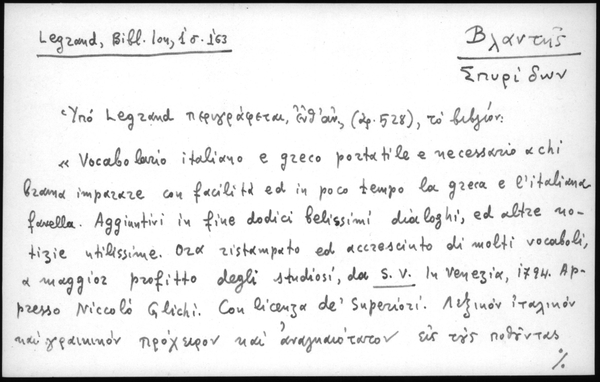 Legrand, Bibl. Ion, 1 σ. 163
Βλαντής
Σπυρίδων
Ὑπό Legrand περιγράφεται, ἔνθ' ἀν, (ἀρ. 528), τό βιβλίον:
« Vocabolario italiano e greco portatile e necessario a chi
brama imparare con facilità ed in poco tempo la greca e l'italiana
favella. Aggiuntivi in fine dodici belissimi dialoghi, ed altre no-
tizie utilissime. Ora ristampato ed accresciuto di molti vocaboli,
a maggior profitto degli studiosi, da S. V. In Venezia, 1794. Ap-
presso Niccoló Glichi. Con licenza de' Superiori. Λεξικόν ἰταλικόν
καί γραικικόν πρόχειρον καί ἀναγκαιότατον εἰς τούς ποθοῦντας
%